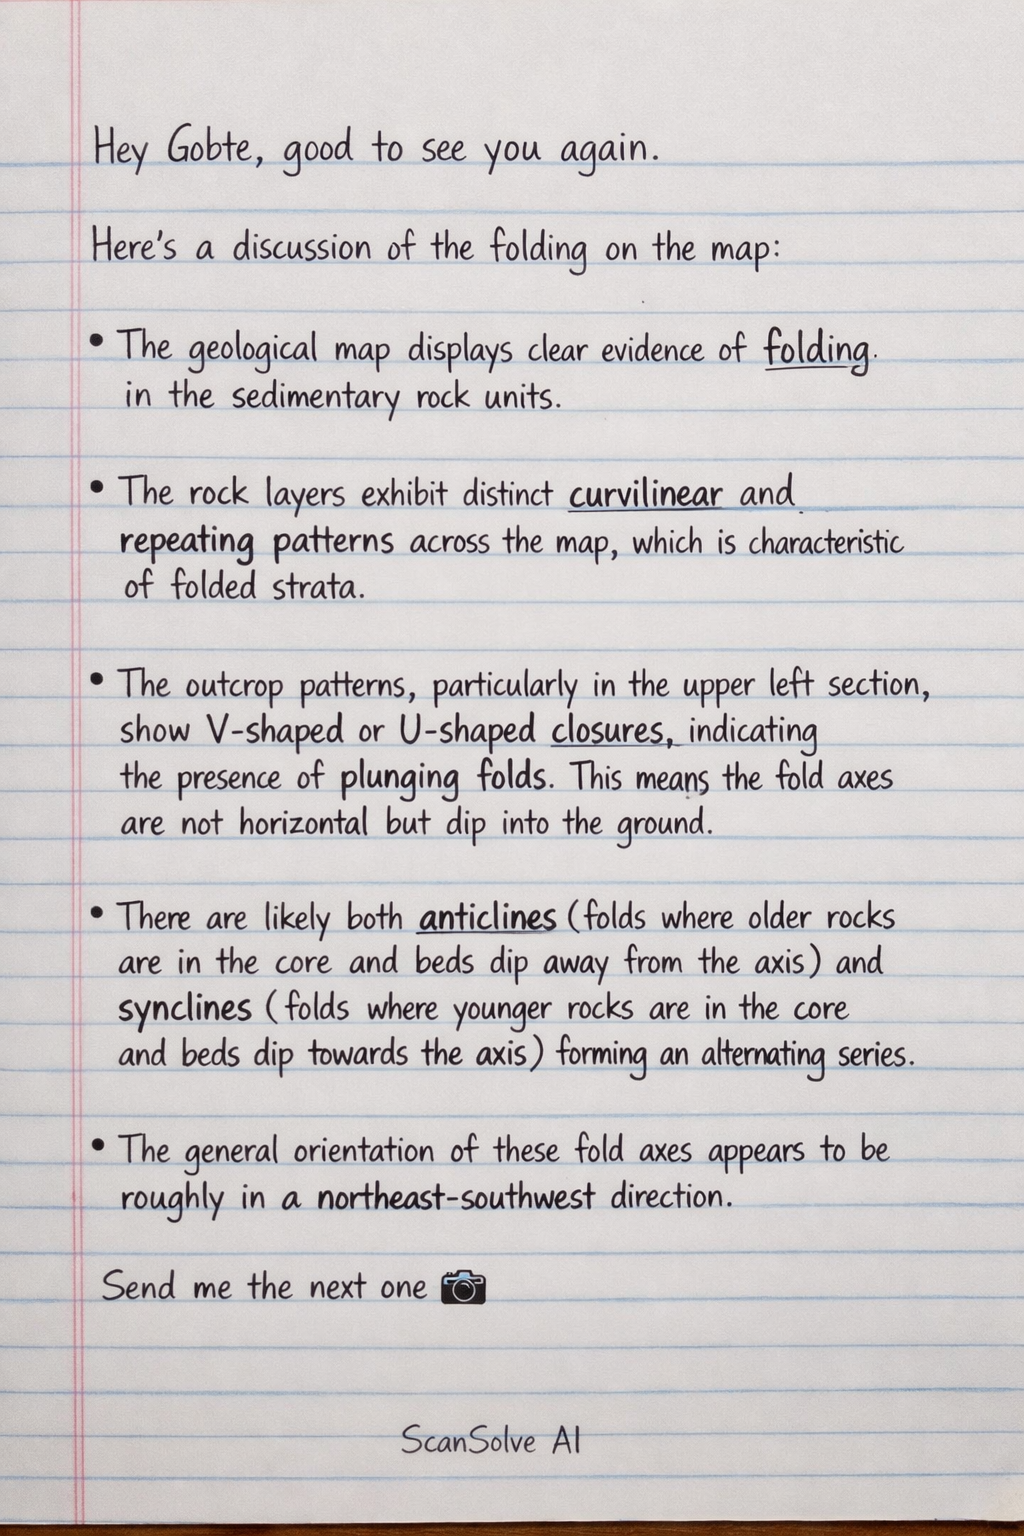 Hey Gobte, good to see you again.
Here's a discussion of the folding on the map:
• The geological map displays clear evidence of folding.
in the sedimentary rock units.
• The rock layers exhibit distinct curvilinear and
repeating patterns across the map, which is characteristic
of folded strata.
• The outcrop patterns, particularly in the upper left section,
show V-shaped or U-shaped closures, indicating
the presence of plunging folds. This means the fold axes
are not horizontal but dip into the ground.
• There are likely both anticlines (folds where older rocks
are in the core and beds dip away from the axis) and
synclines (folds where younger rocks are in the core
and beds dip towards the axis) forming an alternating series.
• The general orientation of these fold axes appears to be
roughly in a northeast-southwest direction.
Send me the next one 📷
ScanSolve AI